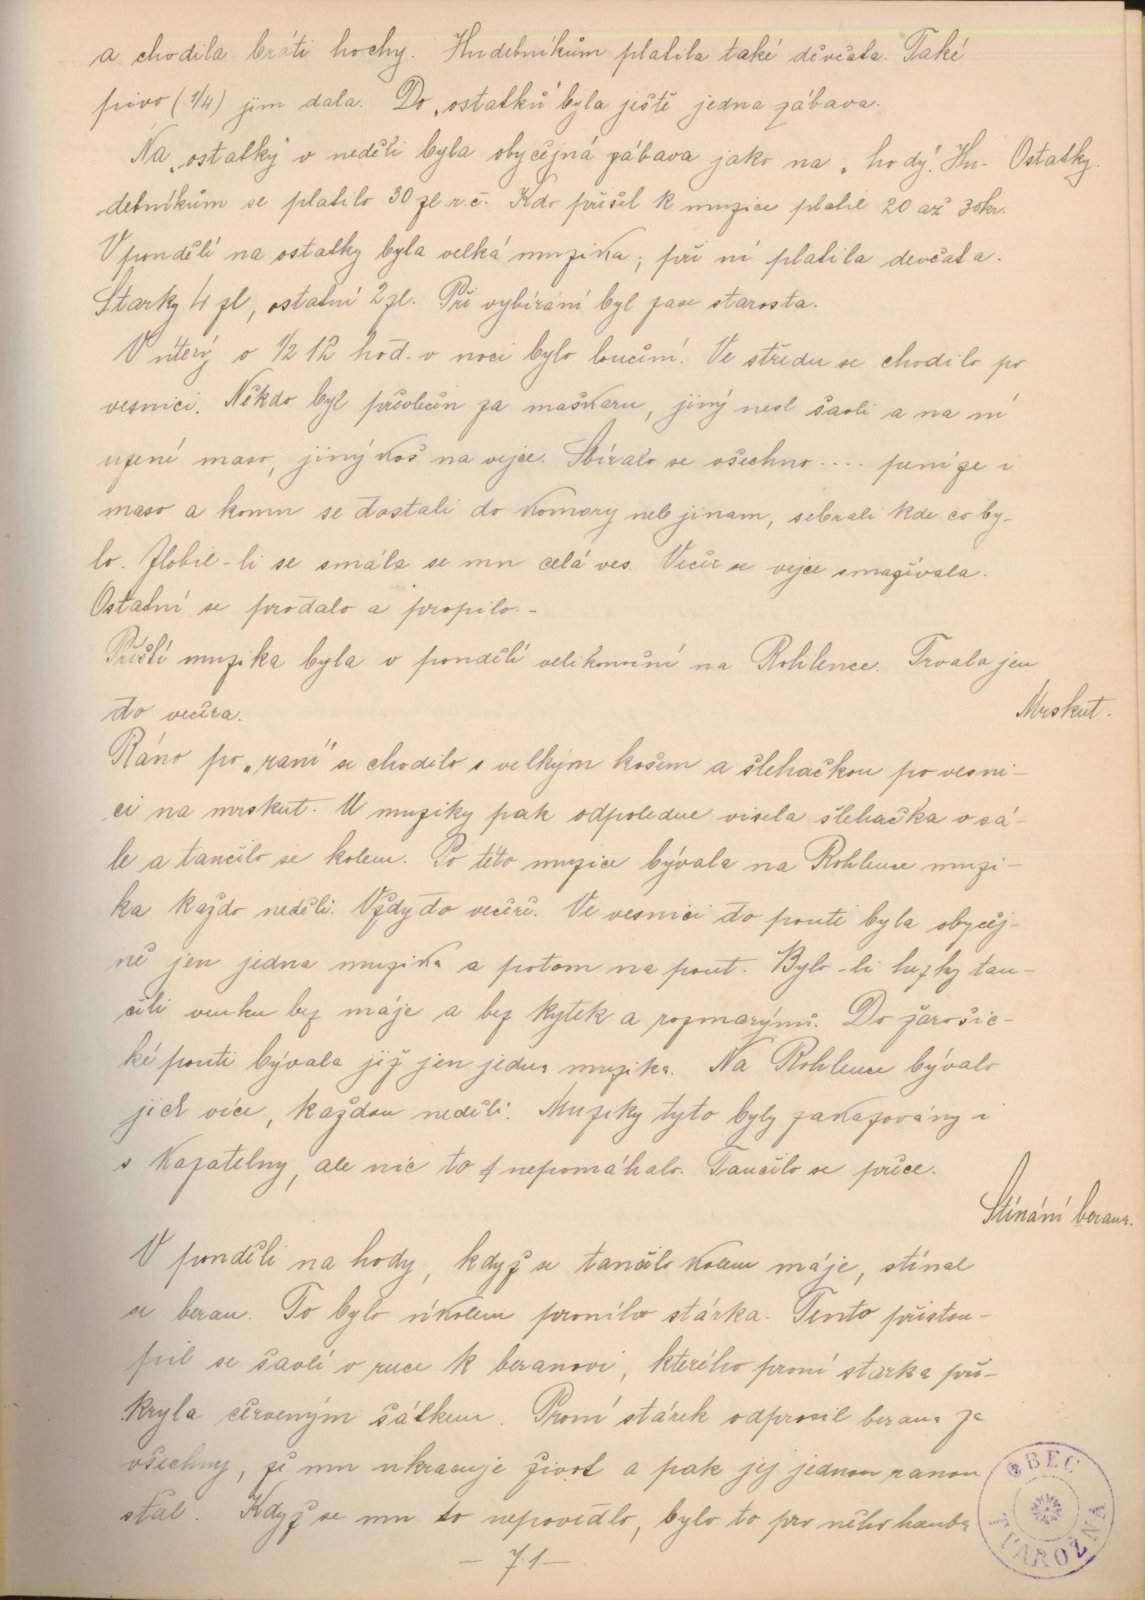 a chodila bráti hochy. Hudebníkům platila také děvčata. Také
pivo (1/4) jim dala. Do „ostatků" byla ještě jedna zábava.
Na „ostatky" v neděli byla obyčejná zábava jako na „hody". Hu-
Ostatky.
debníkům se platilo 30 zl. r. č. Kdo přišel k muzice platil 20 až 30 kr.
V pondělí na ostatky byla velká muzika; při ní platila devčata.
Stárky 4 zl, ostatní 2 zl. Při vybírání byl zase starosta.
V úterý o 1/2 12 hod. v noci bylo loučení. Ve středu se chodilo po
vesnici. Někdo byl převlečen za maškaru, jiný nesl šavli a na ní
uzené maso, jiný koš na vejce. Sbíralo se všechno.... peníze i
maso a komu se dostali do komory neb jinam, sebrali kde co by-
lo. Zlobil-li se smála se mu celá ves. Večer se vejce smažívala.
Ostatní se prodalo a propilo.-
Příští muzika byla v pondělí velikonoční na Rohlence. Trvala jen
do večera.
Mrskut.
Ráno po „raní" se chodilo s velkým košem a šlehačkou po vesni-
ci na mrskut. U muziky pak odpoledne visela šlehačka v sá-
le a tančilo se kolem. Po této muzice bývala na Rohlence muzi-
ka každo neděli. Vždy do večeře. Ve vesnici do pouti byla obyčej-
ně jen jedna muzika a potom na pout. Bylo-li hezky tan-
čili venku bez máje a bez kytek a rozmarýnů. Do žarošic-
ké pouti bývala již jen jedna muzika. Na Rohlence bývalo
jich více, každou neděli. Muziky tyto byly zakazovány i
s kazatelny, ale nic to nepomáhalo. Tančilo se přece.
Stínání berana.
V pondělí na hody, když se tančilo kolem máje, stínal
se beran. To bylo úkolem prvního stárka. Tento přistou-
pil se šavlí v ruce k beranovi, kterého první stárka při-
kryla červeným šátkem. První stárek odprosil berana za
všechny, že mu ukracuje život a pak jej jednou ranou
stal. Když se mu to nepovedlo, bylo to pro něho hanba
— 71 —
OBEC TVAROŽNÁ